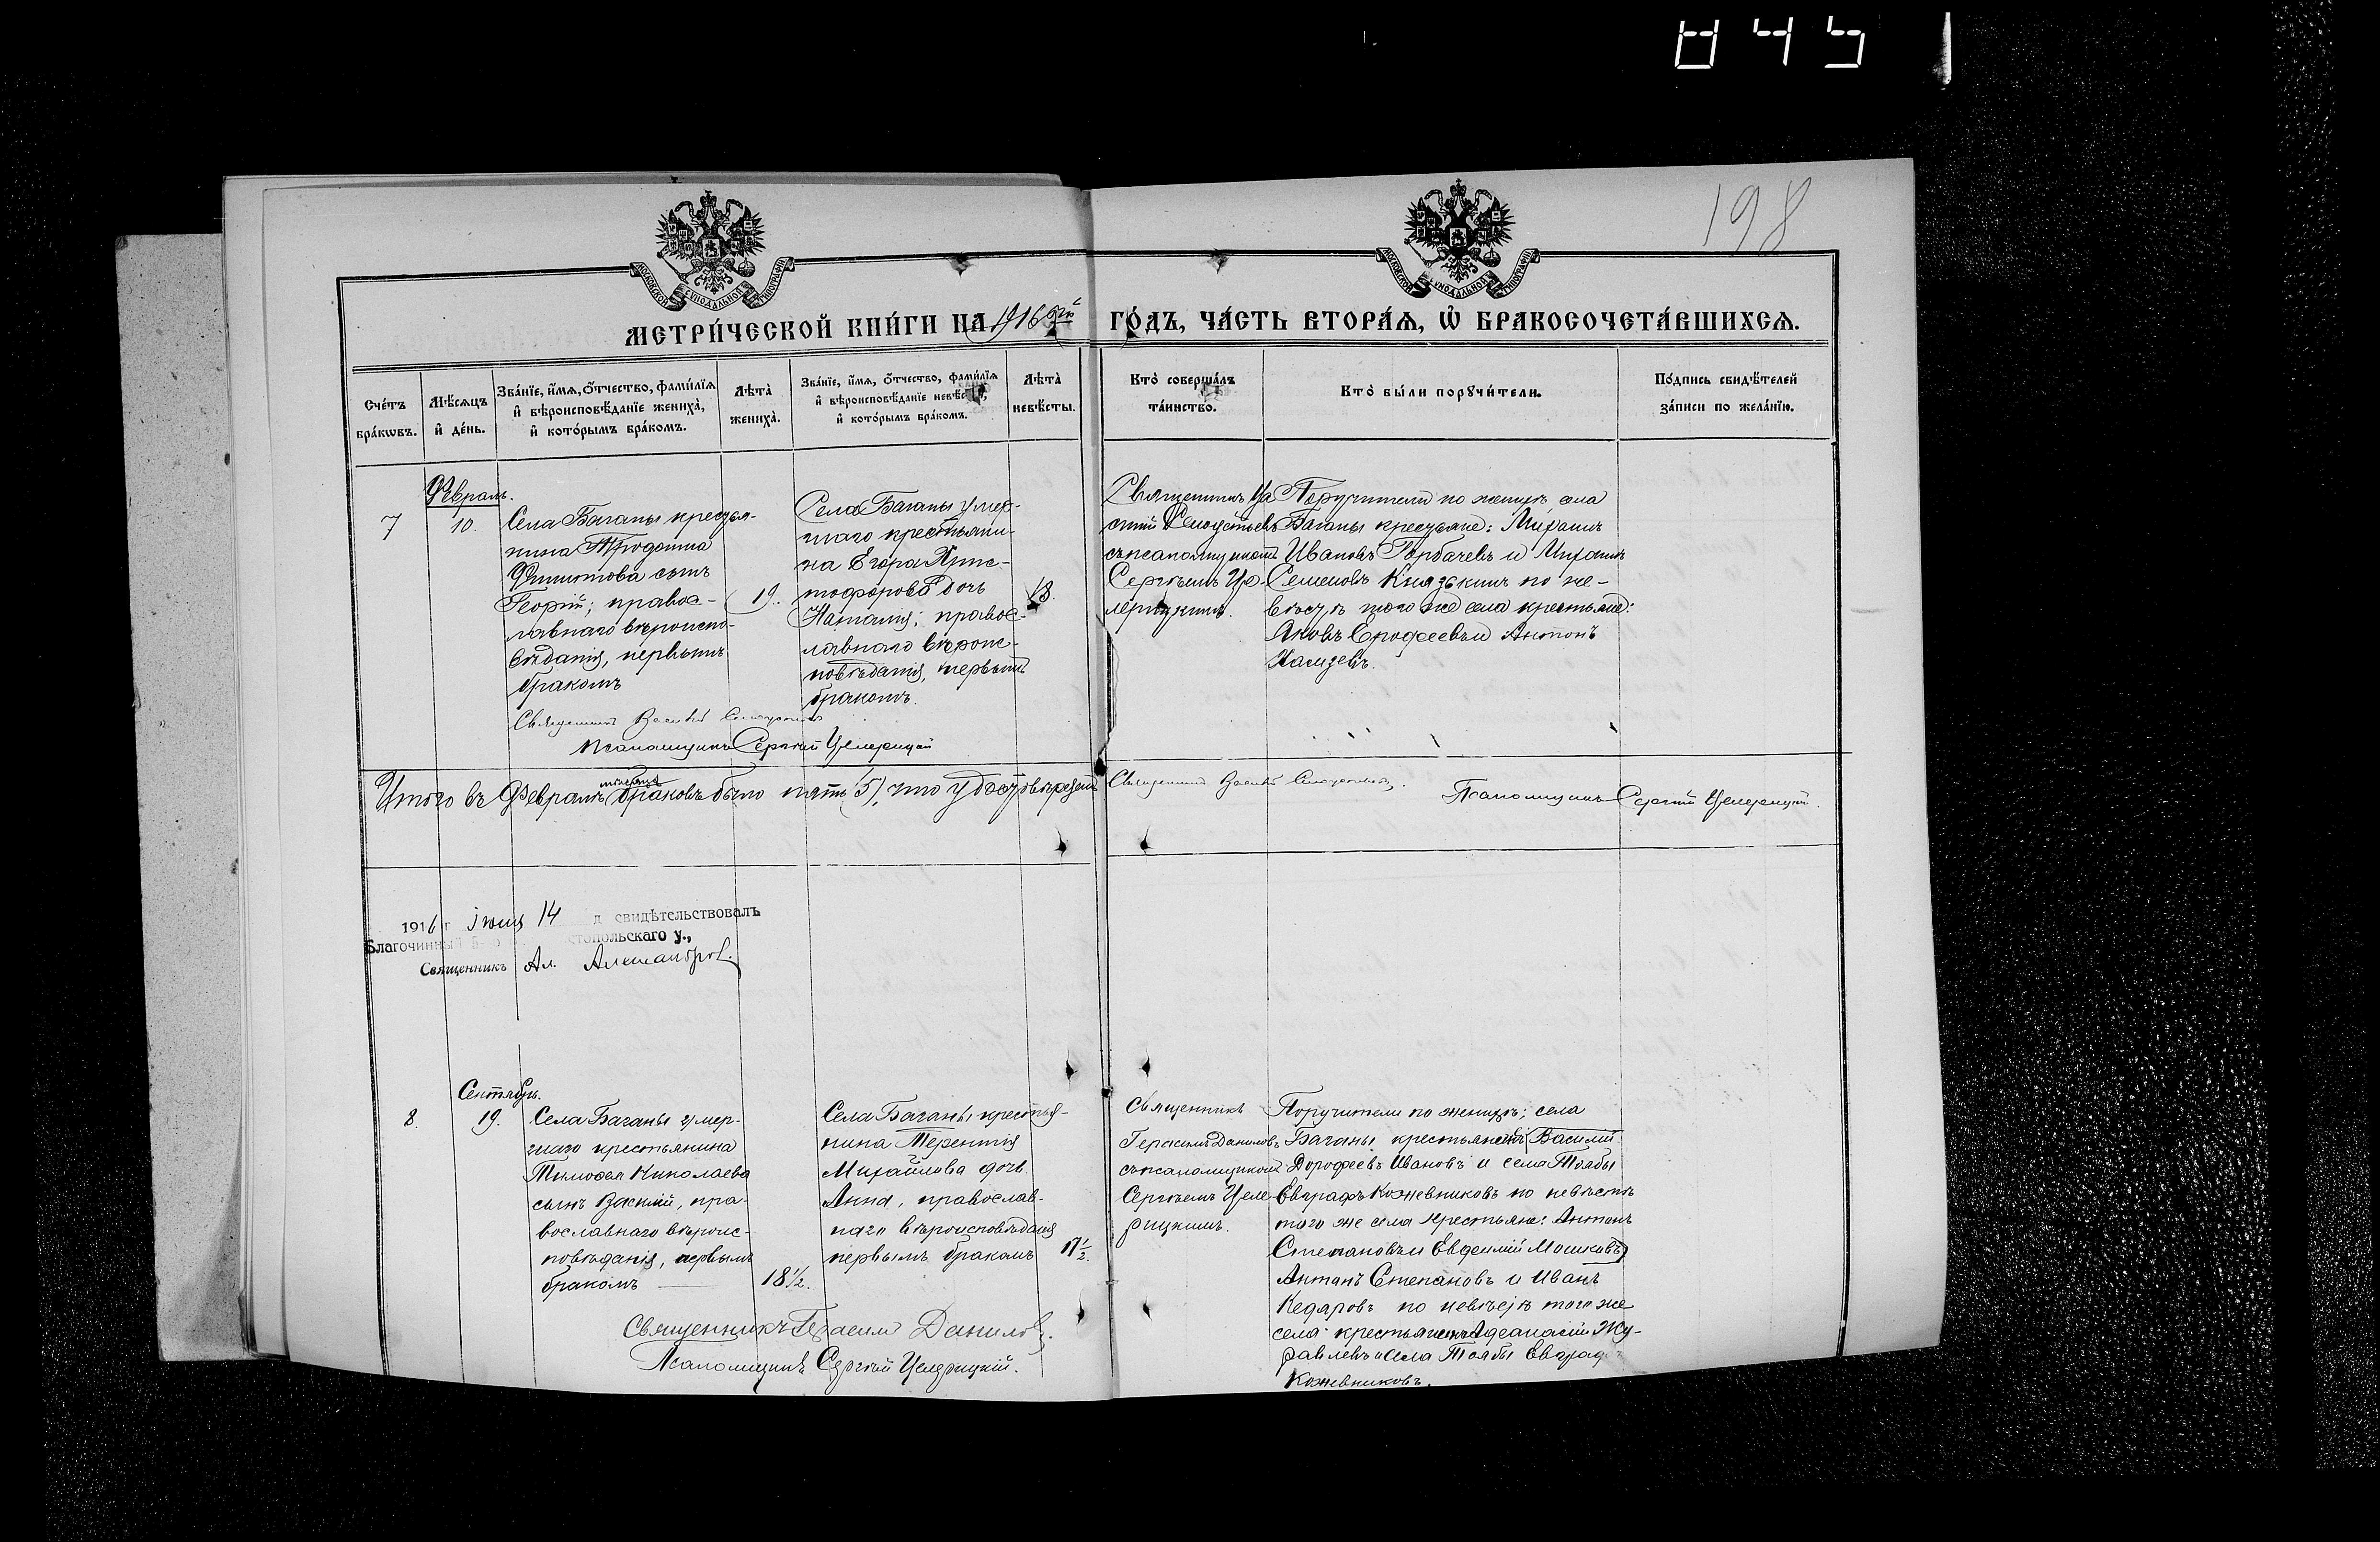 198
МОСКОВСКОЙ СѴНОДАЛЬНОЙ ТИПОГРАФІИ
МОСКОВСКОЙ СѴНОДАЛЬНОЙ ТИПОГРАФІИ
МЕТРИ́ЧЕСКОЙ КНИ́ГИ НА 1916 ый ГО́ДЪ, ЧА́СТЬ ВТОРА́Я, Ѡ҆ БРАКОСОЧЕТА́ВШИХСЯ.
Сче́тъ бра́кѡвъ.
Мѣ́сяцъ и҆ де́нь.
Зва́нїе, и҆́мя, ѻ҆́тчество, фами́лїя и҆ вѣроисповѣ́данїе жениха̀, и҆ кото́рымъ бра́комъ.
Лѣта̀ жениха̀.
Зва́нїе, и҆́мя, ѻ҆́тчество, фами́лїя и҆ вѣроисповѣ́данїе невѣ́сты, и҆ кото́рымъ бра́комъ.
Лѣта̀ невѣ́сты.
Кто̀ соверша́лъ та́инство.
Кто̀ бы́ли порꙋчи́тели.
По́дпись свидѣ́телей за́писи по жела́нїю.
Февраль.
7
10.
Села Баганы крестья-
нина Трофима
сынъ
Георгій; правос-
лавнаго вѣроиспо-
вѣданія, первымъ
бракомъ
19.
Села Баганы умер-
шаго крестьяни-
на Егора Хрис-
тофорова дочь
Наталія; правос-
лавнаго вѣроис-
повѣданія, первымъ
бракомъ.
18.
Священникъ
съ псаломщикомъ
Сергѣемъ Це-
лерицкимъ.
Поручители по женихѣ села
Баганы крестьяне: Михаилъ
Ивановъ Горбачевъ и Михаилъ
Семеновъ Князькинъ по не-
вѣстѣ того же села крестьяне:
Яковъ Ерофеевъ и Антонъ
Священникъ
Псаломщикъ Сергій Целерицкій
Итого въ Февралѣ мѣсяцѣ браковъ было пять (5), что удостовѣряемъ
Священникъ
Псаломщикъ Сергій Целерицкій.
1916 г Іюня 14 д свидѣтельствовалъ
Благочинный стопольскаго у.,
Священникъ Ал. Александров.
Сентябрь.
8.
19.
Села Баганы умер-
шаго крестьянина
Тимофея Николаева
сынъ Василій, пра-
вославнаго вѣроис-
повѣданія, первымъ
бракомъ
18 1/2.
Села Баганы крестья-
нина Терентія
Михайлова дочь
Анна, православ-
наго вѣроисповѣданія
первымъ бракомъ
17 1/2.
Священникъ
Герасимъ Даниловъ
съ псаломщикомъ
Сергѣемъ Целе-
рицкимъ.
Поручители по женихѣ; села
Баганы крестьянинъ Василій
Дорофеевъ Ивановъ и села Тоябы
Евграфъ Кожевниковъ по невѣстѣ
того же села крестьяне: Антонъ
Степановъ и Евфимій Мошковъ
Антонъ Степановъ и Иванъ
Кедаровъ по невѣстѣ того же
села крестьянинъ Афанасій Жу-
равлевъ и села Тоябы Евграфъ
Кожевниковъ.
Священникъ Герасим Данилов.
Псаломщикъ Сергій Целерицкій.